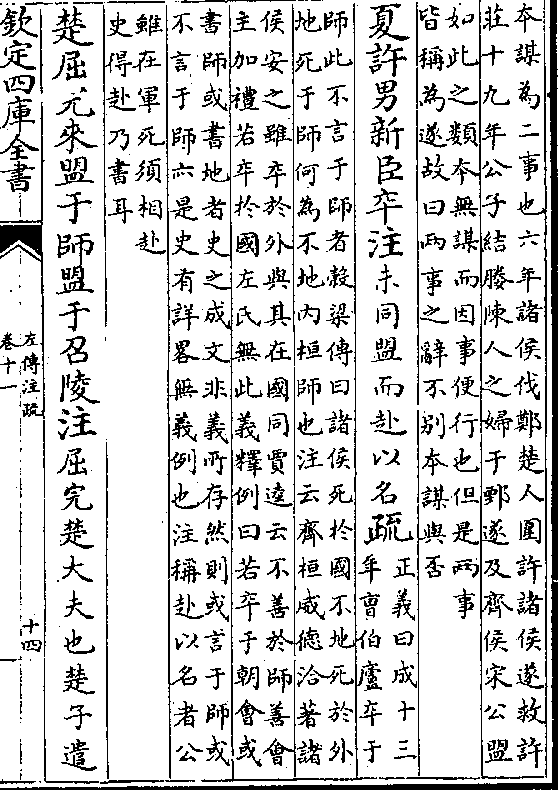 本謀為二事也六年諸侯伐鄭楚人圍許諸侯遂救許
莊十九年公子結媵陳人之婦于鄄遂及齊侯宋公盟
如此之類本無謀而因事便行也但是兩事
皆稱為遂故曰兩事之辭不別本謀與否
夏許男新臣卒注未同盟而赴以名疏正義曰成十三
年曹伯廬卒于
師此不言于師者穀梁傳曰諸侯死於國不地死於外
地死于師何為不地內桓師也注云齊桓威德洽著諸
侯安之雖卒於外與其在國同賈逵云不善於師善會
主加禮若卒於國左氏無此義釋例曰若卒于朝會或
書師或書地者史之成文非義所存然則或言于師或
不言于師亦是史有詳畧無義例也注稱赴以名者公
雖在軍死須相赴
史得赴乃書耳
楚屈完來盟于師盟于召陵注屈完楚大夫也楚子遣
欽定四庫全書
左傳注疏
卷十一
十四